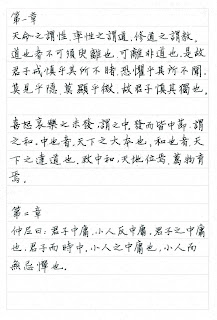 第一章
天命之謂性，率性之謂道，修道之謂教。
道也者不可須臾離也，可離非道也。是故
君子戒慎乎其所不睹，恐懼乎其所不聞。
莫見乎隱，莫顯乎微，故君子慎其獨也。
喜怒哀樂之未發，謂之中，發而皆中節，謂
之和。中也者，天下之大本也，和也者，天
下之達道也。致中和，天地位焉，萬物育
焉。
第二章
仲尼曰：君子中庸，小人反中庸，君子之中庸
也，君子而時中，小人之中庸也，小人而
無忌憚也。